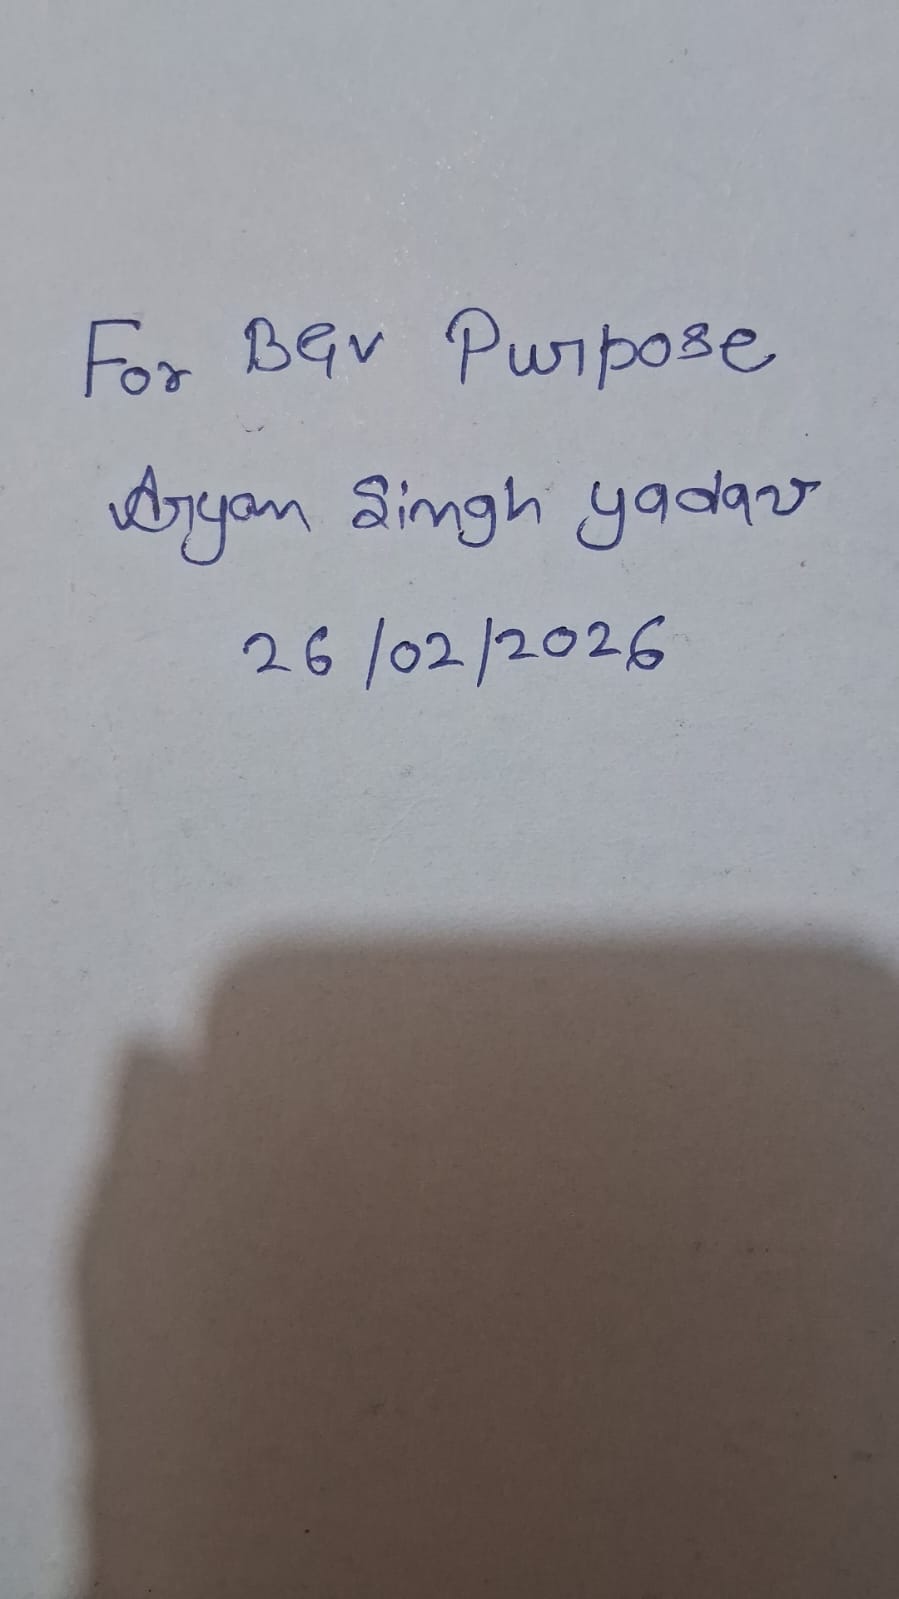 For BGV Purpose
Aryan Singh yadav
26/02/2026